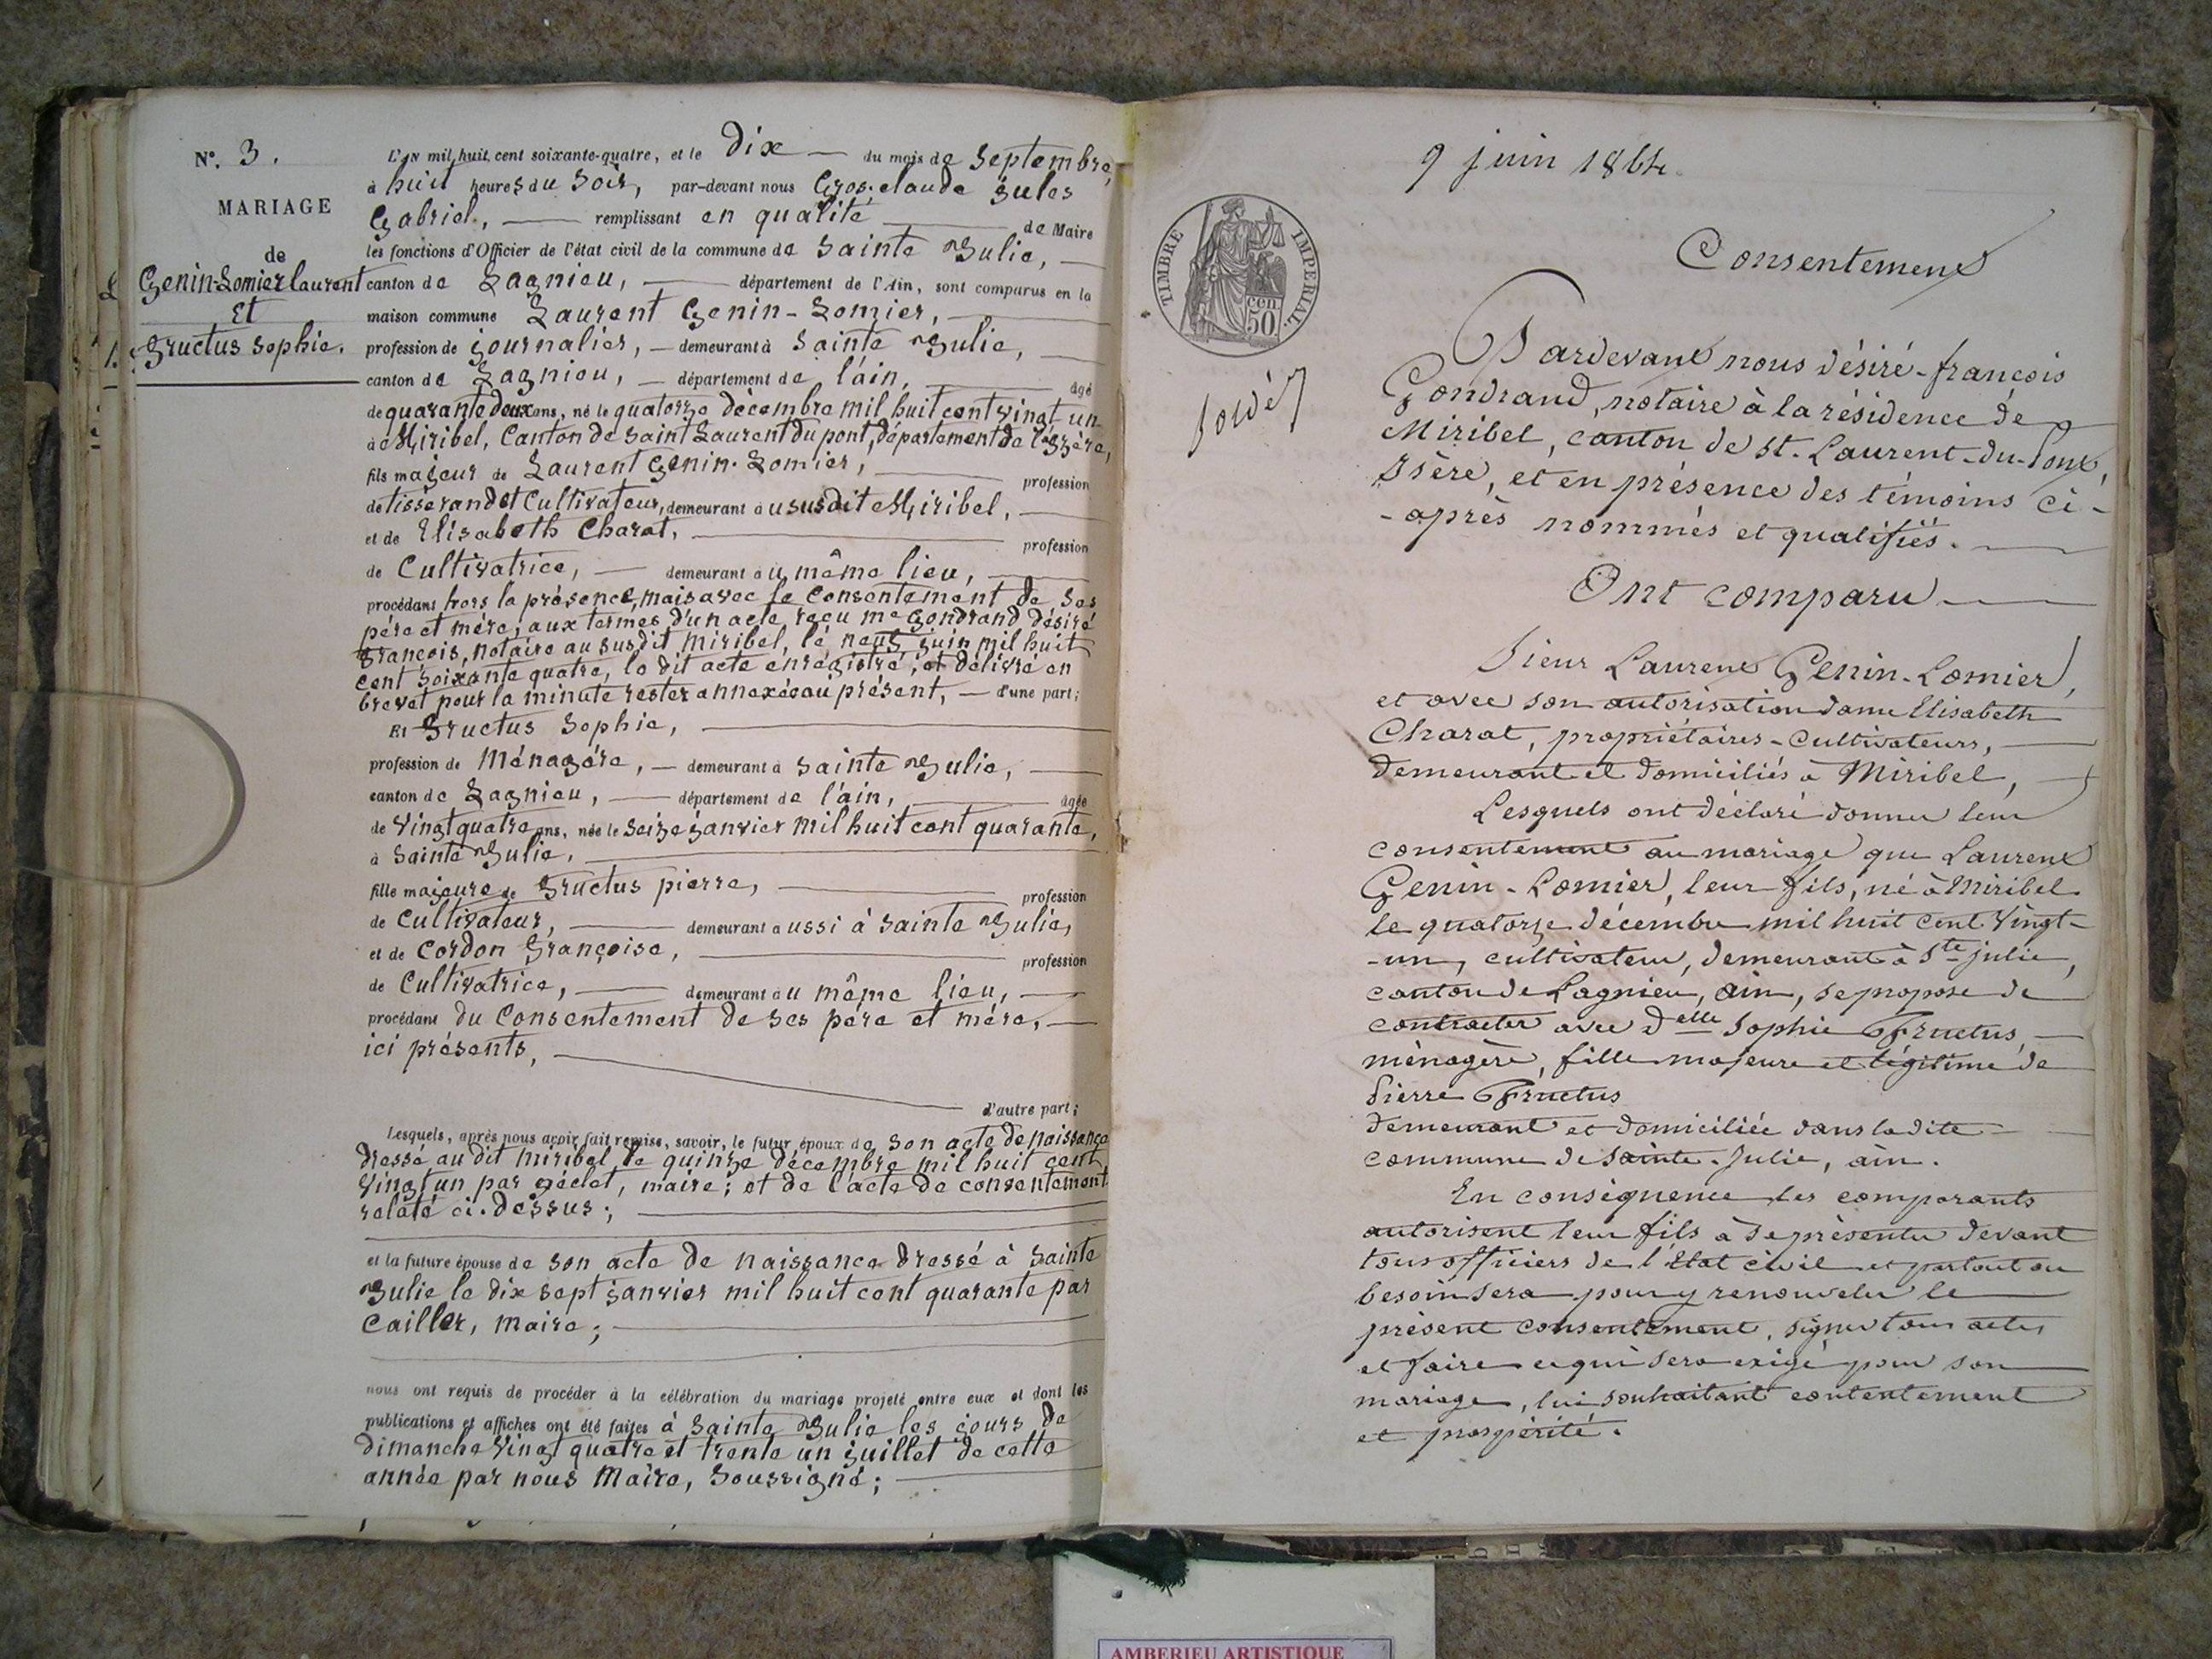 N°. 3.
MARIAGE
de
Genin-Lomier laurent
Et
Fructus Sophie.
L'AN mil huit cent soixante-quatre, et le Dix — du mois de Septembre,
à huit heures du Soir, par-devant nous Gros, claude Jules
Gabriel, — remplissant en qualité — de Maire
les fonctions d'Officier de l'état civil de la commune de Sainte Julie, —
canton de Lagnieu, — département de l'Ain, sont comparus en la
maison commune Laurent Genin-Lomier, —
profession de journalier, — demeurant à Sainte Julie, —
canton de Lagnieu, — département de l'ain, — âgé
de quarante deux ans, né le quatorze décembre mil huit cent vingt un
à Miribel, Canton de Saint Laurent du pont, département de l'isère,
fils majeur de Laurent Genin-Lomier, — profession
de tisserand et Cultivateur, demeurant au susdit Miribel, —
et de Elisabeth Charat, — profession
de Cultivatrice, — demeurant au même lieu, —
procédant hors la présence, mais avec le Consentement de ses
père et mère, aux termes d'un acte, reçu me Gondrand Désiré
François, notaire au susdit Miribel, le neuf juin mil huit
cent soixante quatre, le dit acte enregistré, et délivré en
brevet pour la minute rester annexée au présent, — d'une part;
Et Fructus Sophie, —
profession de Ménagère, — demeurant à Sainte Julie, —
canton de Lagnieu, — département de l'ain, — âgée
de Vingt quatre ans, née le Seize janvier mil huit cent quarante,
à Sainte Julie, —
fille majeure de Fructus pierre, — profession
de Cultivateur, — demeurant aussi à Sainte Julie,
et de Cordon Françoise, — profession
de Cultivatrice, — demeurant au même lieu, —
procédant du Consentement de ses père et mère, —
ici présents, —
d'autre part;
Lesquels, après nous avoir fait remise, savoir, le futur époux de son acte de naissance
dressé au dit Miribel le quinze décembre mil huit cent
vingt un par maire; et de l'acte de consentement
relaté ci-dessus; —
et la future épouse de son acte de naissance dressé à Sainte
Julie le dix sept janvier mil huit cent quarante par
Cailler, maire; —
nous ont requis de procéder à la célébration du mariage projeté entre eux et dont les
publications et affiches ont été faites à Sainte Julie les jours de
dimanche vingt quatre et trente un juillet de cette
année par nous Maire, Soussigné; —
9 juin 1864
TIMBRE IMPERIAL
50 cen.
Consentement
Pardevant nous désiré-françois
Gondrand, notaire à la résidence de
Miribel, canton de St. Laurent-du-Pont,
Isère, et en présence des témoins ci-
-après nommés et qualifiés. —
Ont comparu —
Sieur Laurent Genin-Lomier,
et avec son autorisation dame Elisabeth
Charat, propriétaires-cultivateurs, —
demeurant et domiciliés à Miribel, —
Lesquels ont déclaré donner leur
consentement au mariage que Laurent
Genin-Lomier, leur fils, né à Miribel
le quatorze décembre mil huit cent vingt-
-un, cultivateur, demeurant à Ste julie,
canton de Lagnieu, ain, se propose de
contracter avec Delle Sophie Fructus, —
ménagère, fille majeure et légitime de
Pierre Fructus
demeurant et domiciliée dans la dite —
commune de Sainte-Julie, ain.
En conséquence les comparants
autorisent leur fils à se présenter devant
tous officiers de l'état civil et partout où
besoin sera pour y renouveler le —
présent consentement, signer tous actes
et faire ce qui sera exigé pour son —
mariage, lui souhaitant contentement
et prospérité.
AMBERIEU ARTISTIQUE